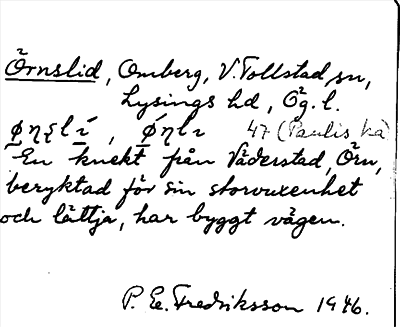 Örnslid, Omberg, V. Tollstad sn,
Lysings hd, Ög. l.
47 (Paulis kä
En knekt från Väderstad, Örn,
beryktad för sin storvuxenhet
och lättja, har byggt vägen.
P. Ee. Fredriksson 1946.